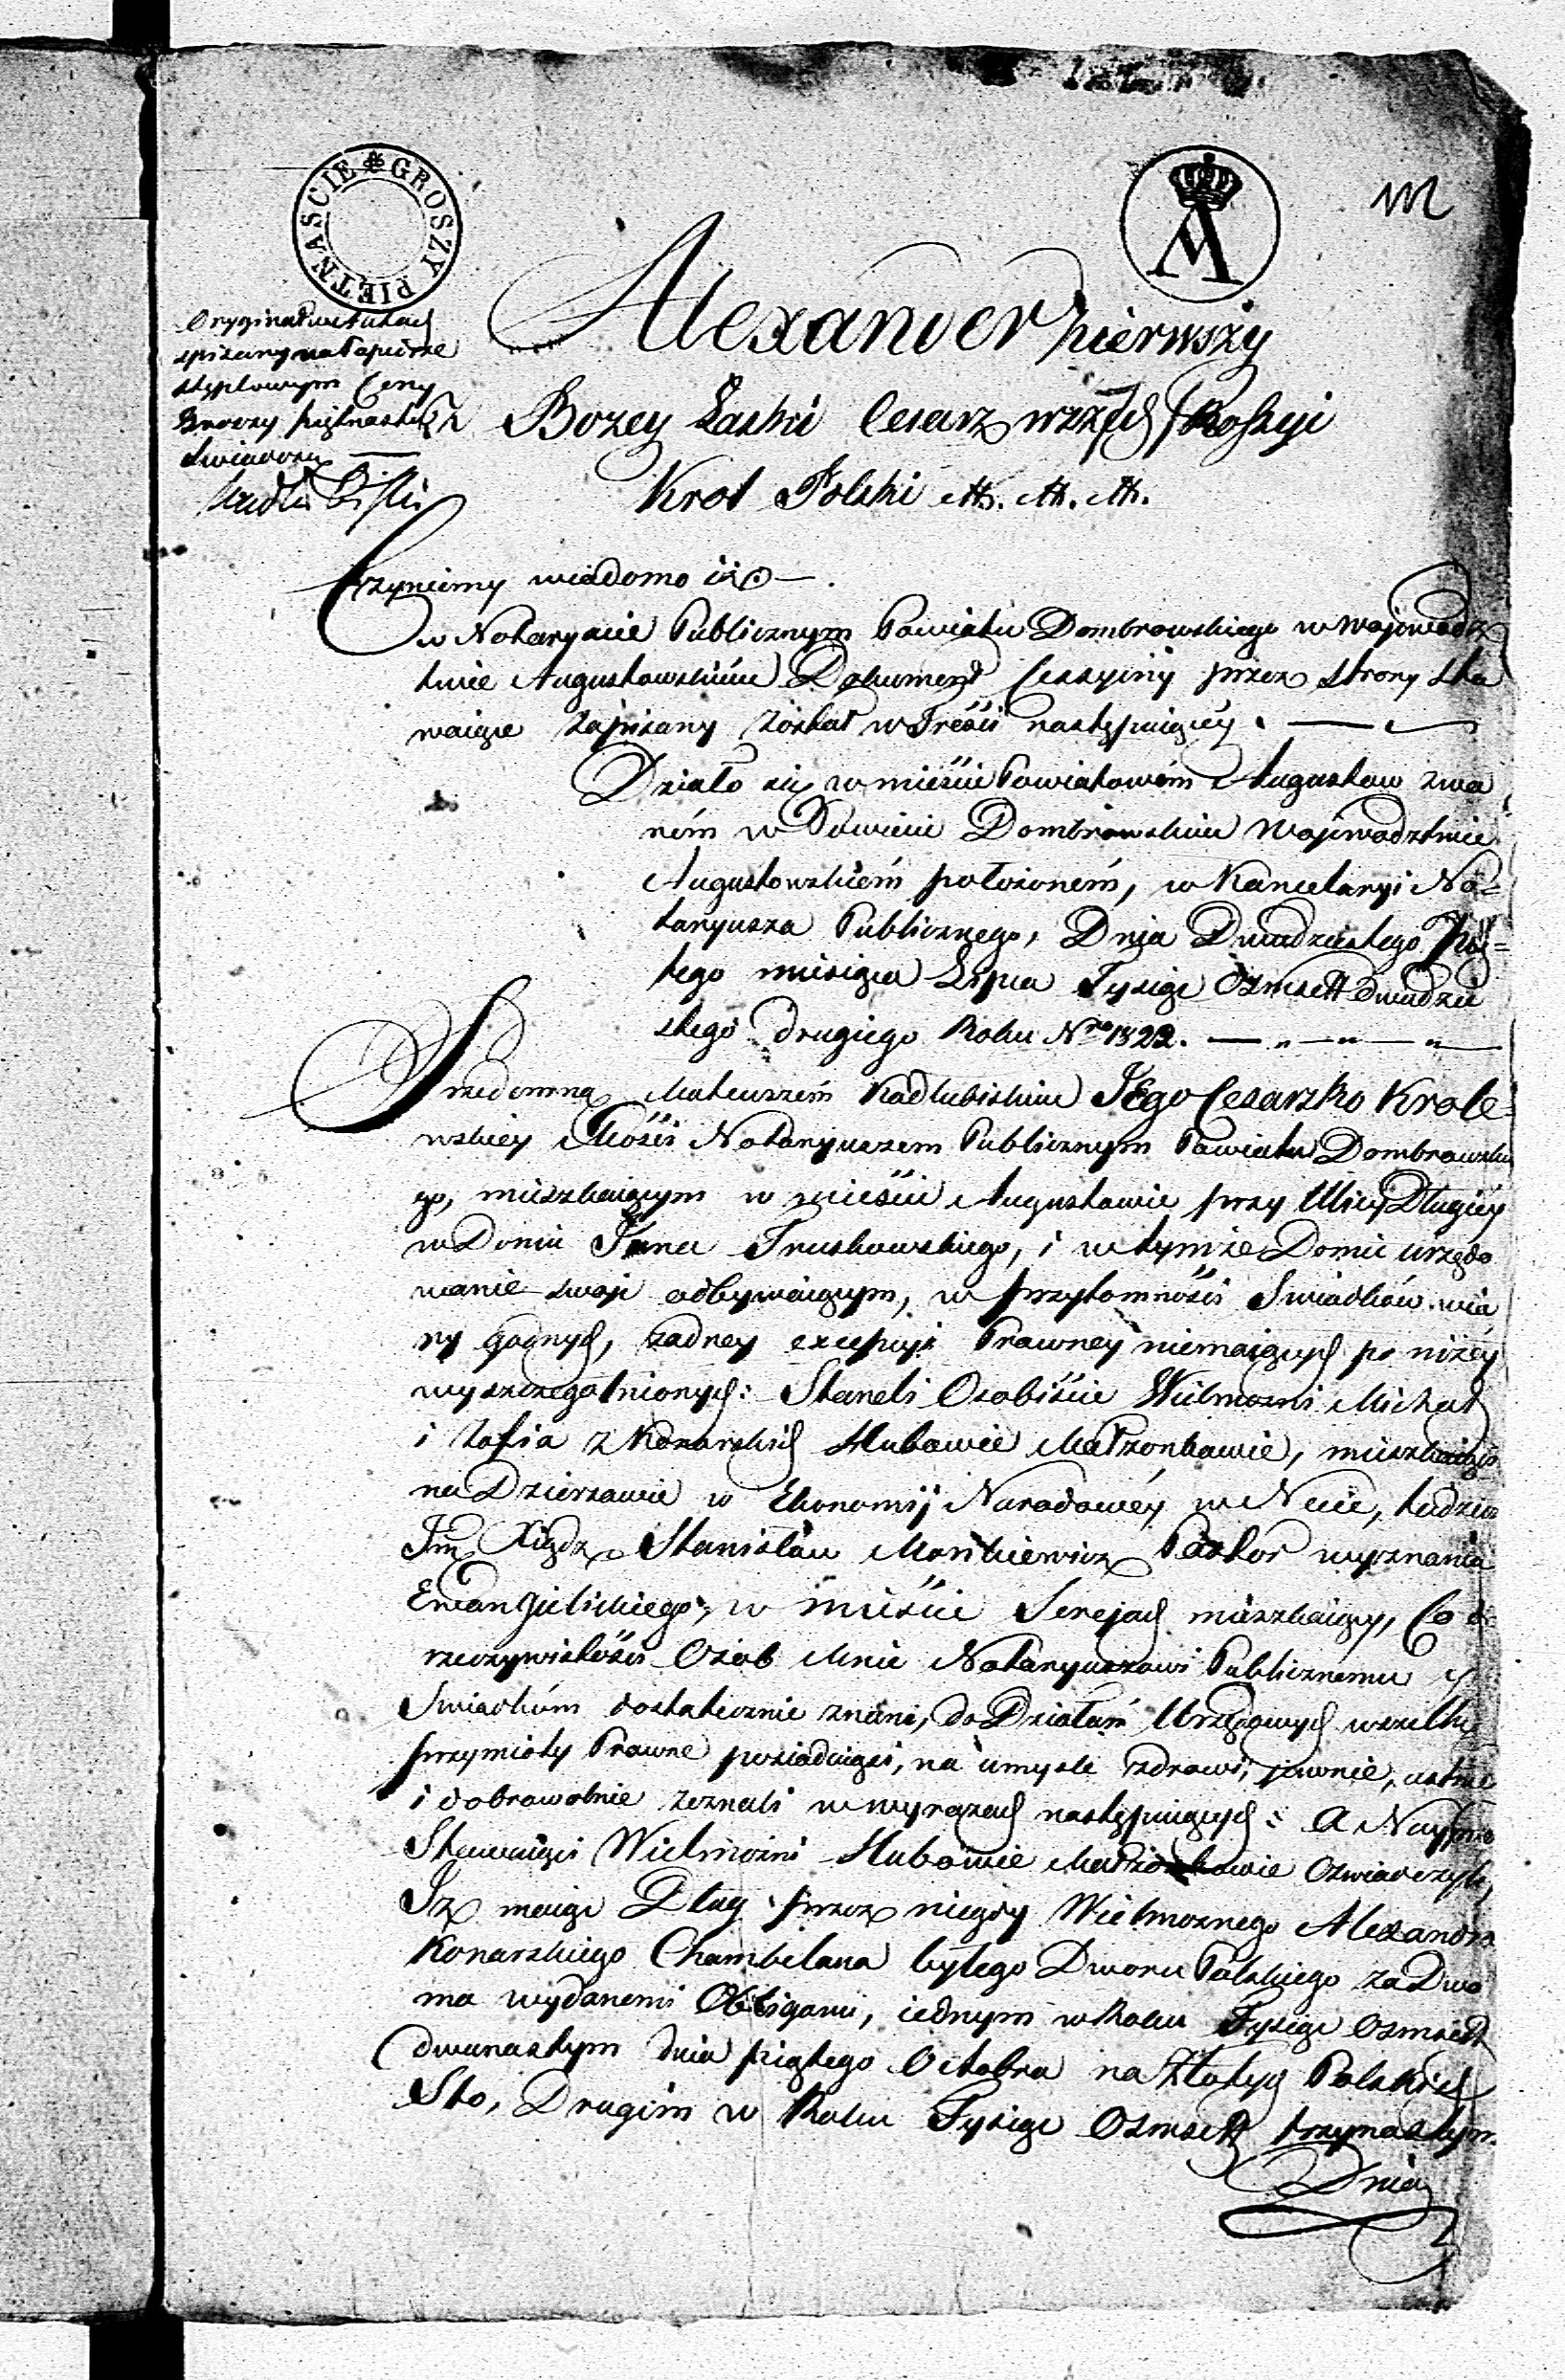 PIĘTNAŚCIE GROSZY
A
Oryginał w Aktach
spisany na Papierze
stęplowym Ceny
Groszy piętnastu
świadczę
Alexander pierwszy
Z Bozey Łaski Cesarz wszęch Rossyi
Krol Polski etc. etc. etc.
Czyniemy wiadomo iż
w Notaryacie Publicznym Powiatu Dombrowskiego w Wojewodz
twie Augustowskiém Dokument Cessyiny przez strony sta
waiące zapisany został w Treści następuiącéy.
Działo się w mieście Powiatowém Augustow zwa
ném w Powiecie Dombrowskim Wojewodztwie
Augustowskiém położoném, w Kancelaryi No=
taryusza Publicznego, Dnia Dwudziestego Pią=
tego miesiąca Lipca Tysiąc Ośmset dwudzie
stego drugiego Roku Nro 1822.
Przedemną Mateuszém Kadłubiskim JEgo Cesarsko Krole=
wskiey Mości Notaryuszem Publicznym Powiatu Dombrowskie
go, mieszkaiącym w mieście Augustowie przy Ulicy Długiéy
w Domu Jana Truskowskiego, i w tymże Domu urzędo
wanie swoje odbywaiącym, w przytomności Swiadków wia
ry godnych, zadney excepcyi Prawney niemaiących po niżéy
wyszczegolnionych: Staneli Osobiście Wielmożni Michał
i Zofia z Konarskich Hubowie Małżonkowie, mieszkaiący
na Dzierżawie w Ekonomij Narodowéy w Necie, tudzież
Jm Xiądz Stanisław Mońkiewicz Pastor wyznania
Ewanjelickiego, w mieście Serejach mieszkaiący, Co do
rzeczywistości Osób Mnie Notaryuszowi Publicznemu y
Swiadkóm dostatecznie znani, do Działań Urzędowych wszelkie
przymioty Prawne posiadaiący, na umyśle zdrowi, jawnie, ustnie
i dobrowolnie zeznali w wyrazach następuiących: A Nayprzód
Stawaiący Wielmożni Hubowie Małżonkowie Oswiadczyli,
Iż maiąc Dług przez niegdy Wielmożnego Alexandra
Konarskiego Chambelana byłego Dworu Polskiego za Dwo
ma wydanemi Obligami, iednym w Roku Tysiąc Osmset
dwunastym dnia piątego Octobra na Złotych Polskich
Sto, Drugim w Roku Tysiąc Osmset trzynastym
Dnia